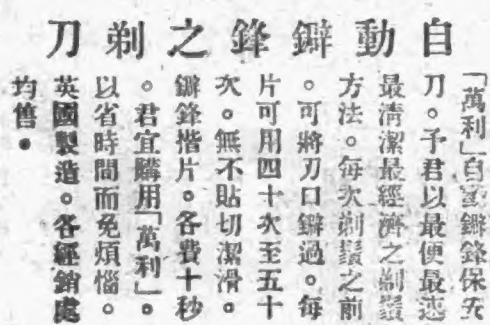 自動鐴鋒之剃刀
「萬利」自家鐴鋒保安
刀。予君以最便最速
最清潔最經濟之剃鬚
方法。每次剃鬚之前
。可將刀口鐴過。每
片可用四十次至五十
次。無不貼切潔滑。
鐴鋒揩片。各費十秒
。君宜購用「萬利」。
以省時間而免煩惱。
英國製造。各經銷處
均售。